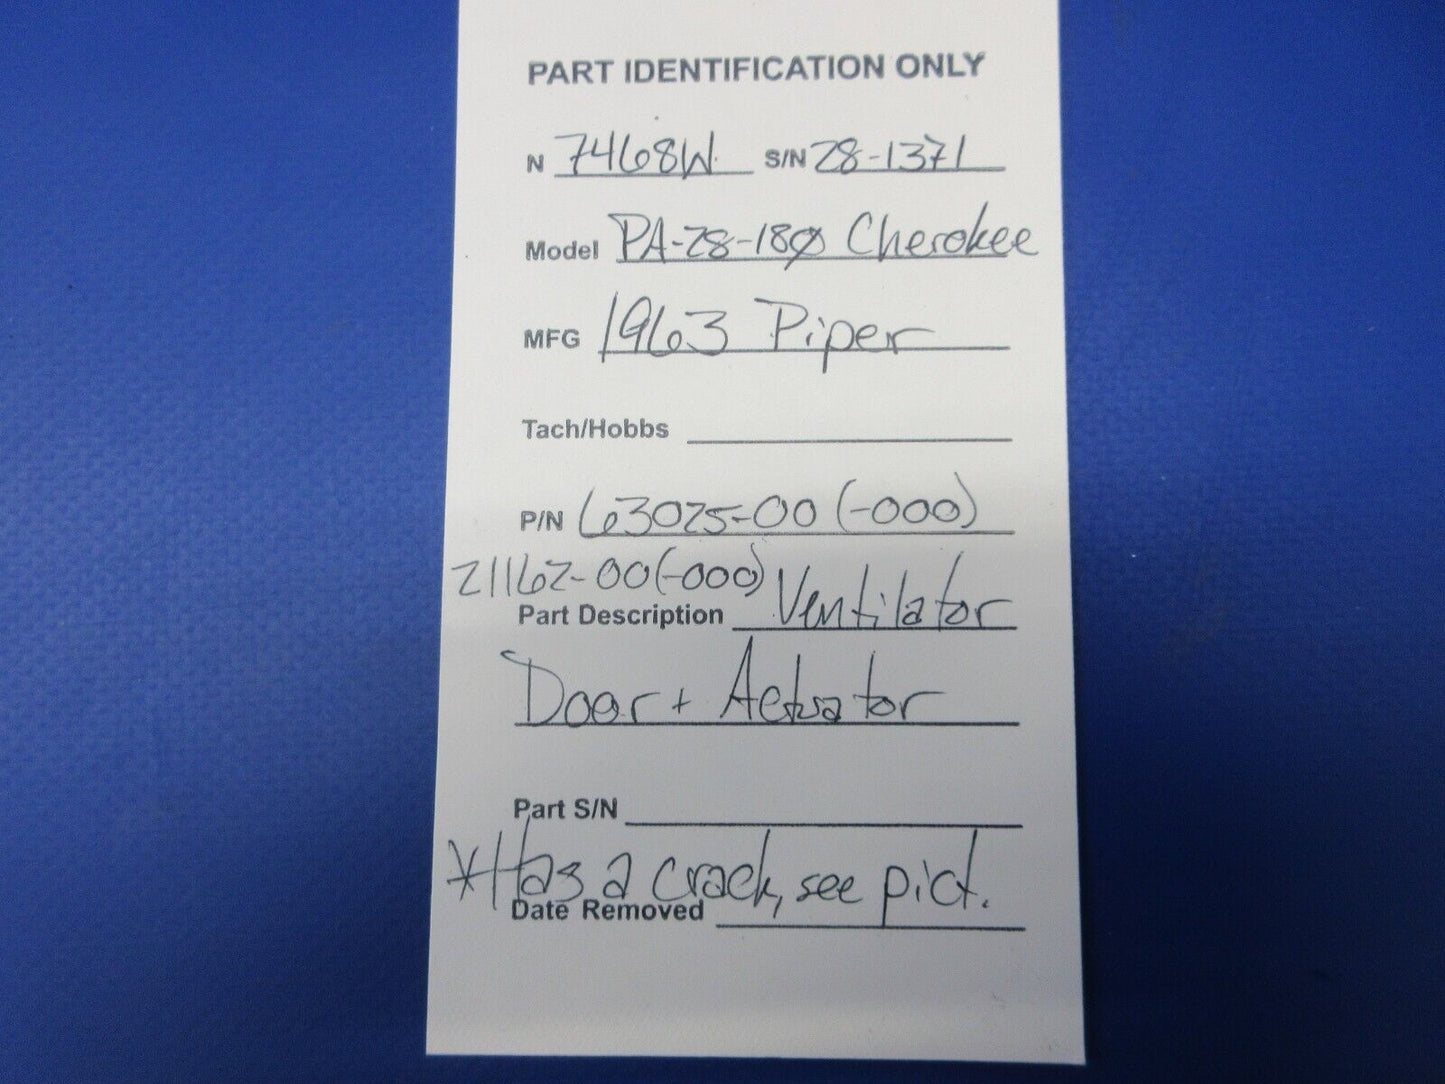 PART IDENTIFICATION ONLY
N 7468W S/N 28-1371
Model PA-28-180 Cherokee
MFG 1963 Piper
Tach/Hobbs
P/N 63025-00 (-000)
21162-00(-000)
Part Description Ventilator
Door + Actuator
Part S/N
*Has a crack, see pict.
Date Removed